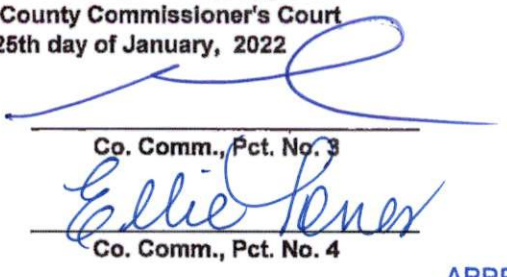 County Commissioner's Court
25th day of January, 2022
Co. Comm., Pct. No. 3
Ellie
Co. Comm., Pct. No. 4